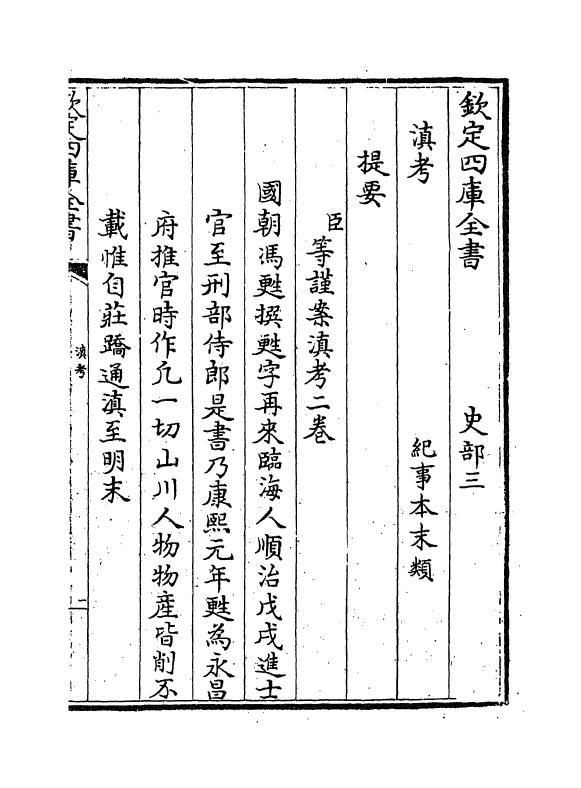 欽定四庫全書　　史部三
滇考　　紀事本末類
提要
臣等謹案滇考二卷
國朝馮甦撰甦字再來臨海人順治戊戌進士
官至刑部侍郎是書乃康熙元年甦為永昌
府推官時作凡一切山川人物物產皆削不
載惟自莊蹻通滇至明末
欽定四庫全書
滇考
一